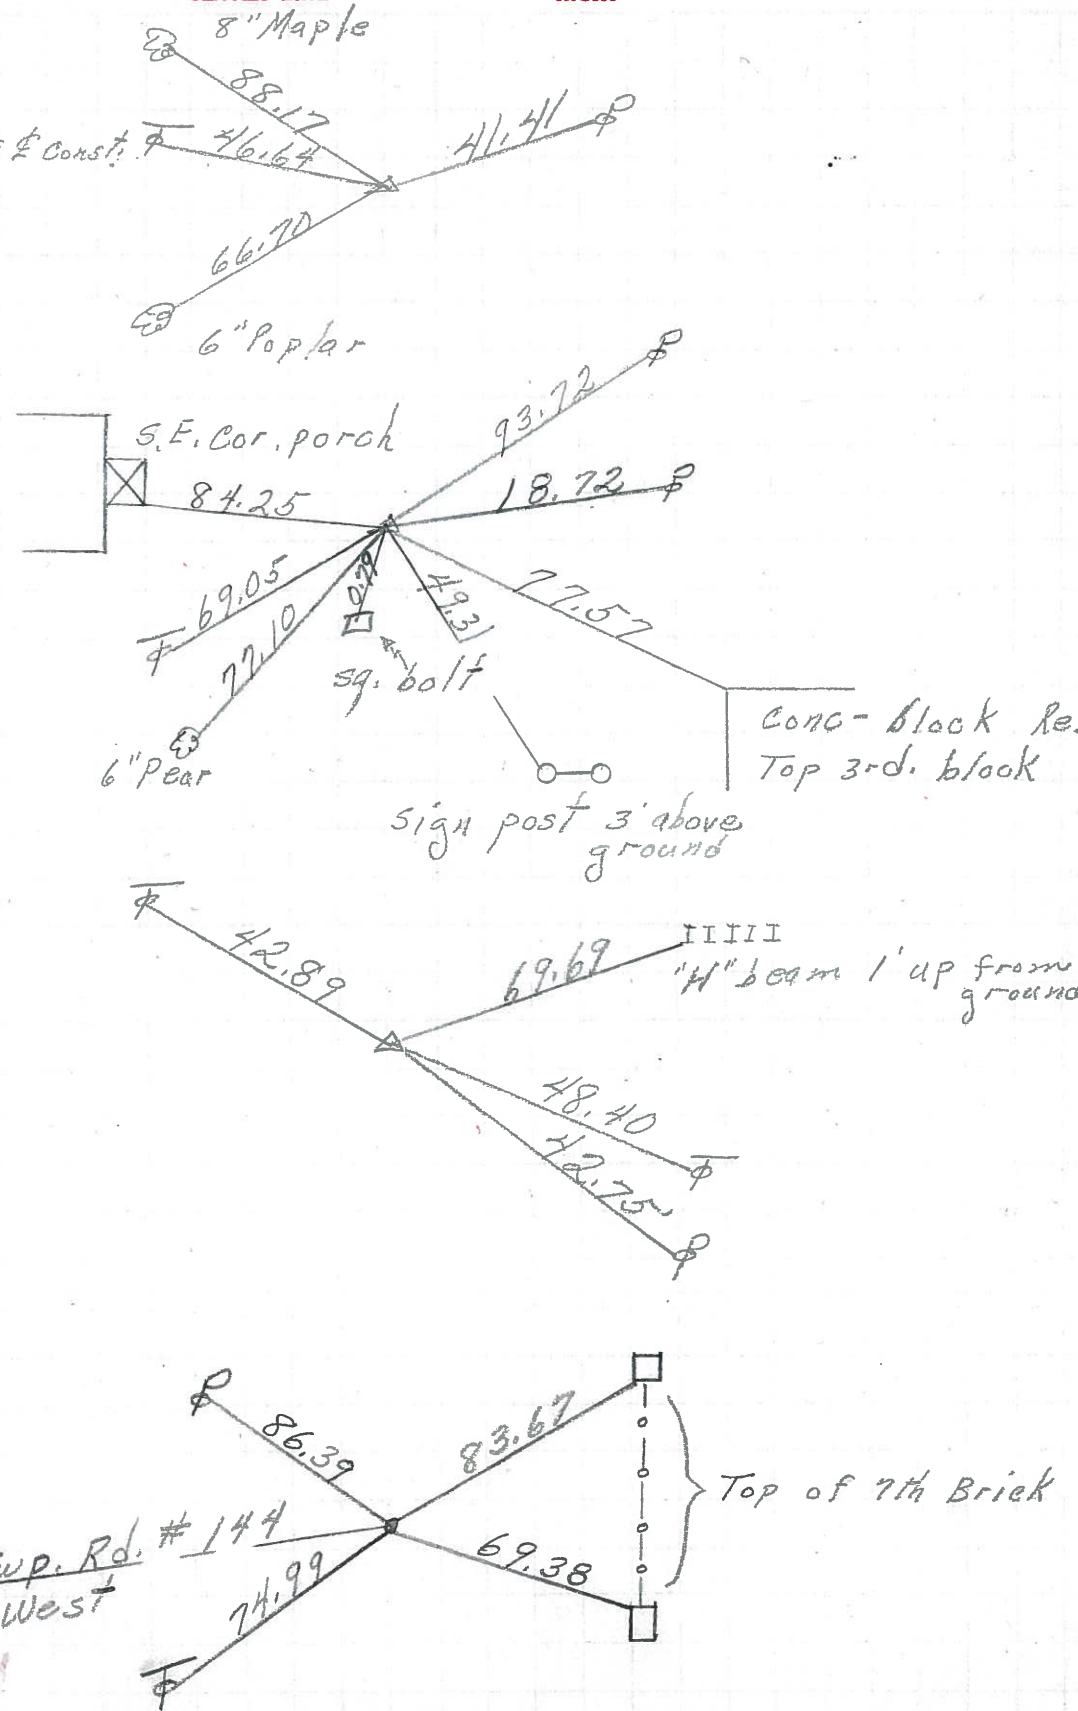 8" Maple
88.17
41.41
₵ const.
46.64
66.70
6" Poplar
93.72
S.E. Cor. porch
18.72
84.25
69.05
77.10
0.79
49.31
77.57
sq. bolt
Conc-block Re.
Top 3rd. block
6" Pear
Sign post 3' above
ground
42.89
69.69
IIIII
"H" beam 1' up from
ground
48.40
42.75
86.39
83.67
Top of 7th Brick
Rd. # 144
West
69.38
74.99